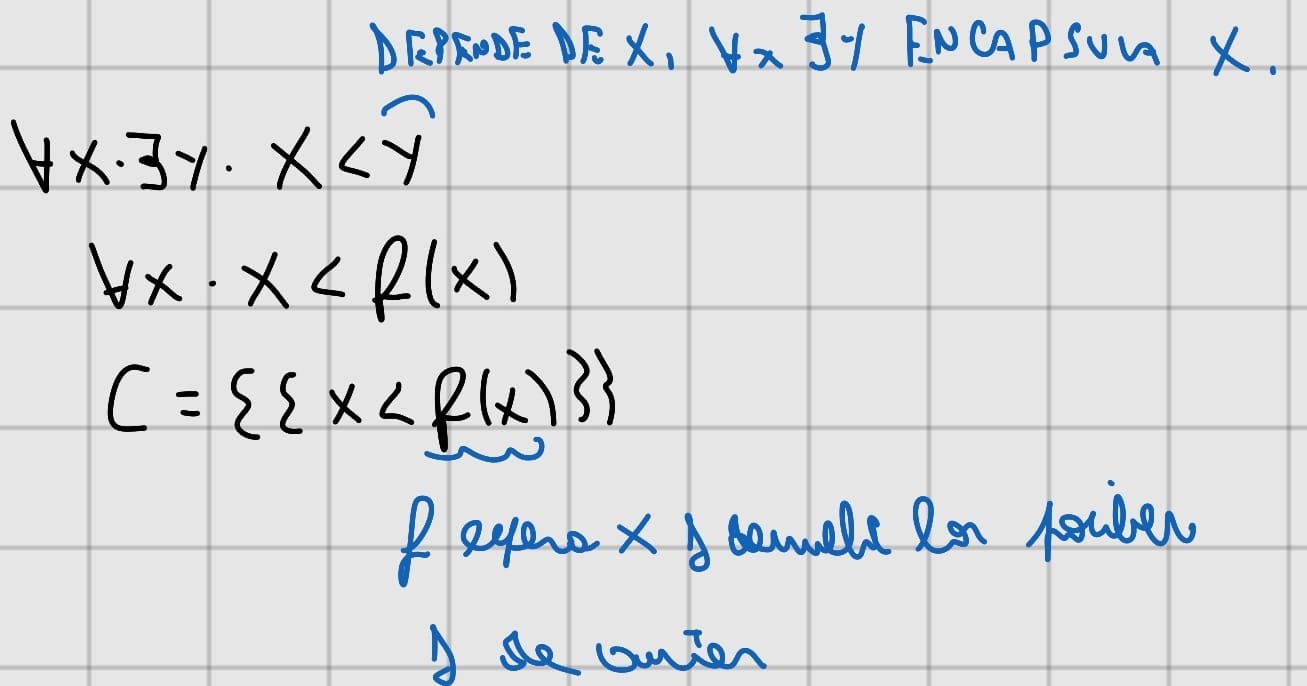 DEPENDE DE X, ∀x ∃y ENCAPSULA X.
∀x.∃y. X<Y
∀x. X<f(x)
C={{x<f(x)}}
f espera x y devuelve los posibles
y de